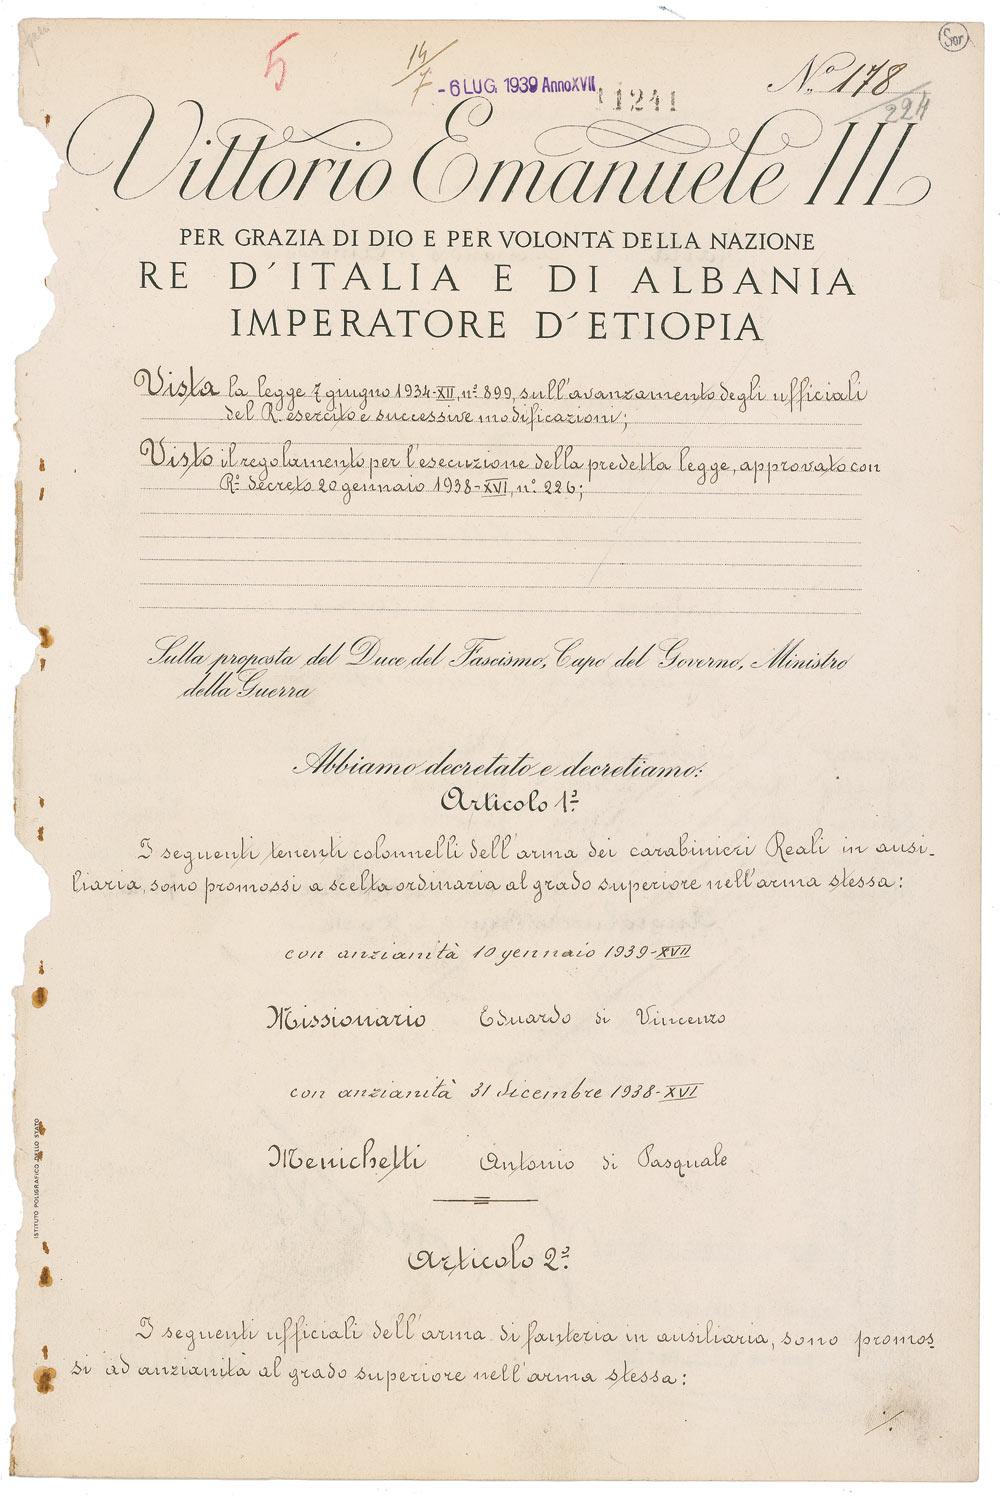 5
14/7
- 6 LUG. 1939 Anno XVII
11241
Nº 178
224
Sor
Vittorio Emanuele III
PER GRAZIA DI DIO E PER VOLONTÀ DELLA NAZIONE
RE D'ITALIA E DI ALBANIA
IMPERATORE D'ETIOPIA
Vista la legge 7 giugno 1934-XII, nº 899, sull'avanzamento degli ufficiali
del R. esercito e successive modificazioni;
Visto il regolamento per l'esecuzione della predetta legge, approvato con
Rº decreto 20 gennaio 1938-XVI, nº 226;
Sulla proposta del Duce del Fascismo, Capo del Governo, Ministro
della Guerra
Abbiamo decretato e decretiamo:
Articolo 1º
I seguenti tenenti colonnelli dell'arma dei carabinieri Reali in ausi-
liaria, sono promossi a scelta ordinaria al grado superiore nell'arma stessa:
con anzianità 10 gennaio 1939-XVII
Missionario Eduardo di Vincenzo
con anzianità 31 dicembre 1938-XVI
Menichetti Antonio di Pasquale
Articolo 2º
I seguenti ufficiali dell'arma di fanteria in ausiliaria, sono promos
si ad anzianità al grado superiore nell'arma stessa:
./.
ISTITUTO POLIGRAFICO DELLO STATO